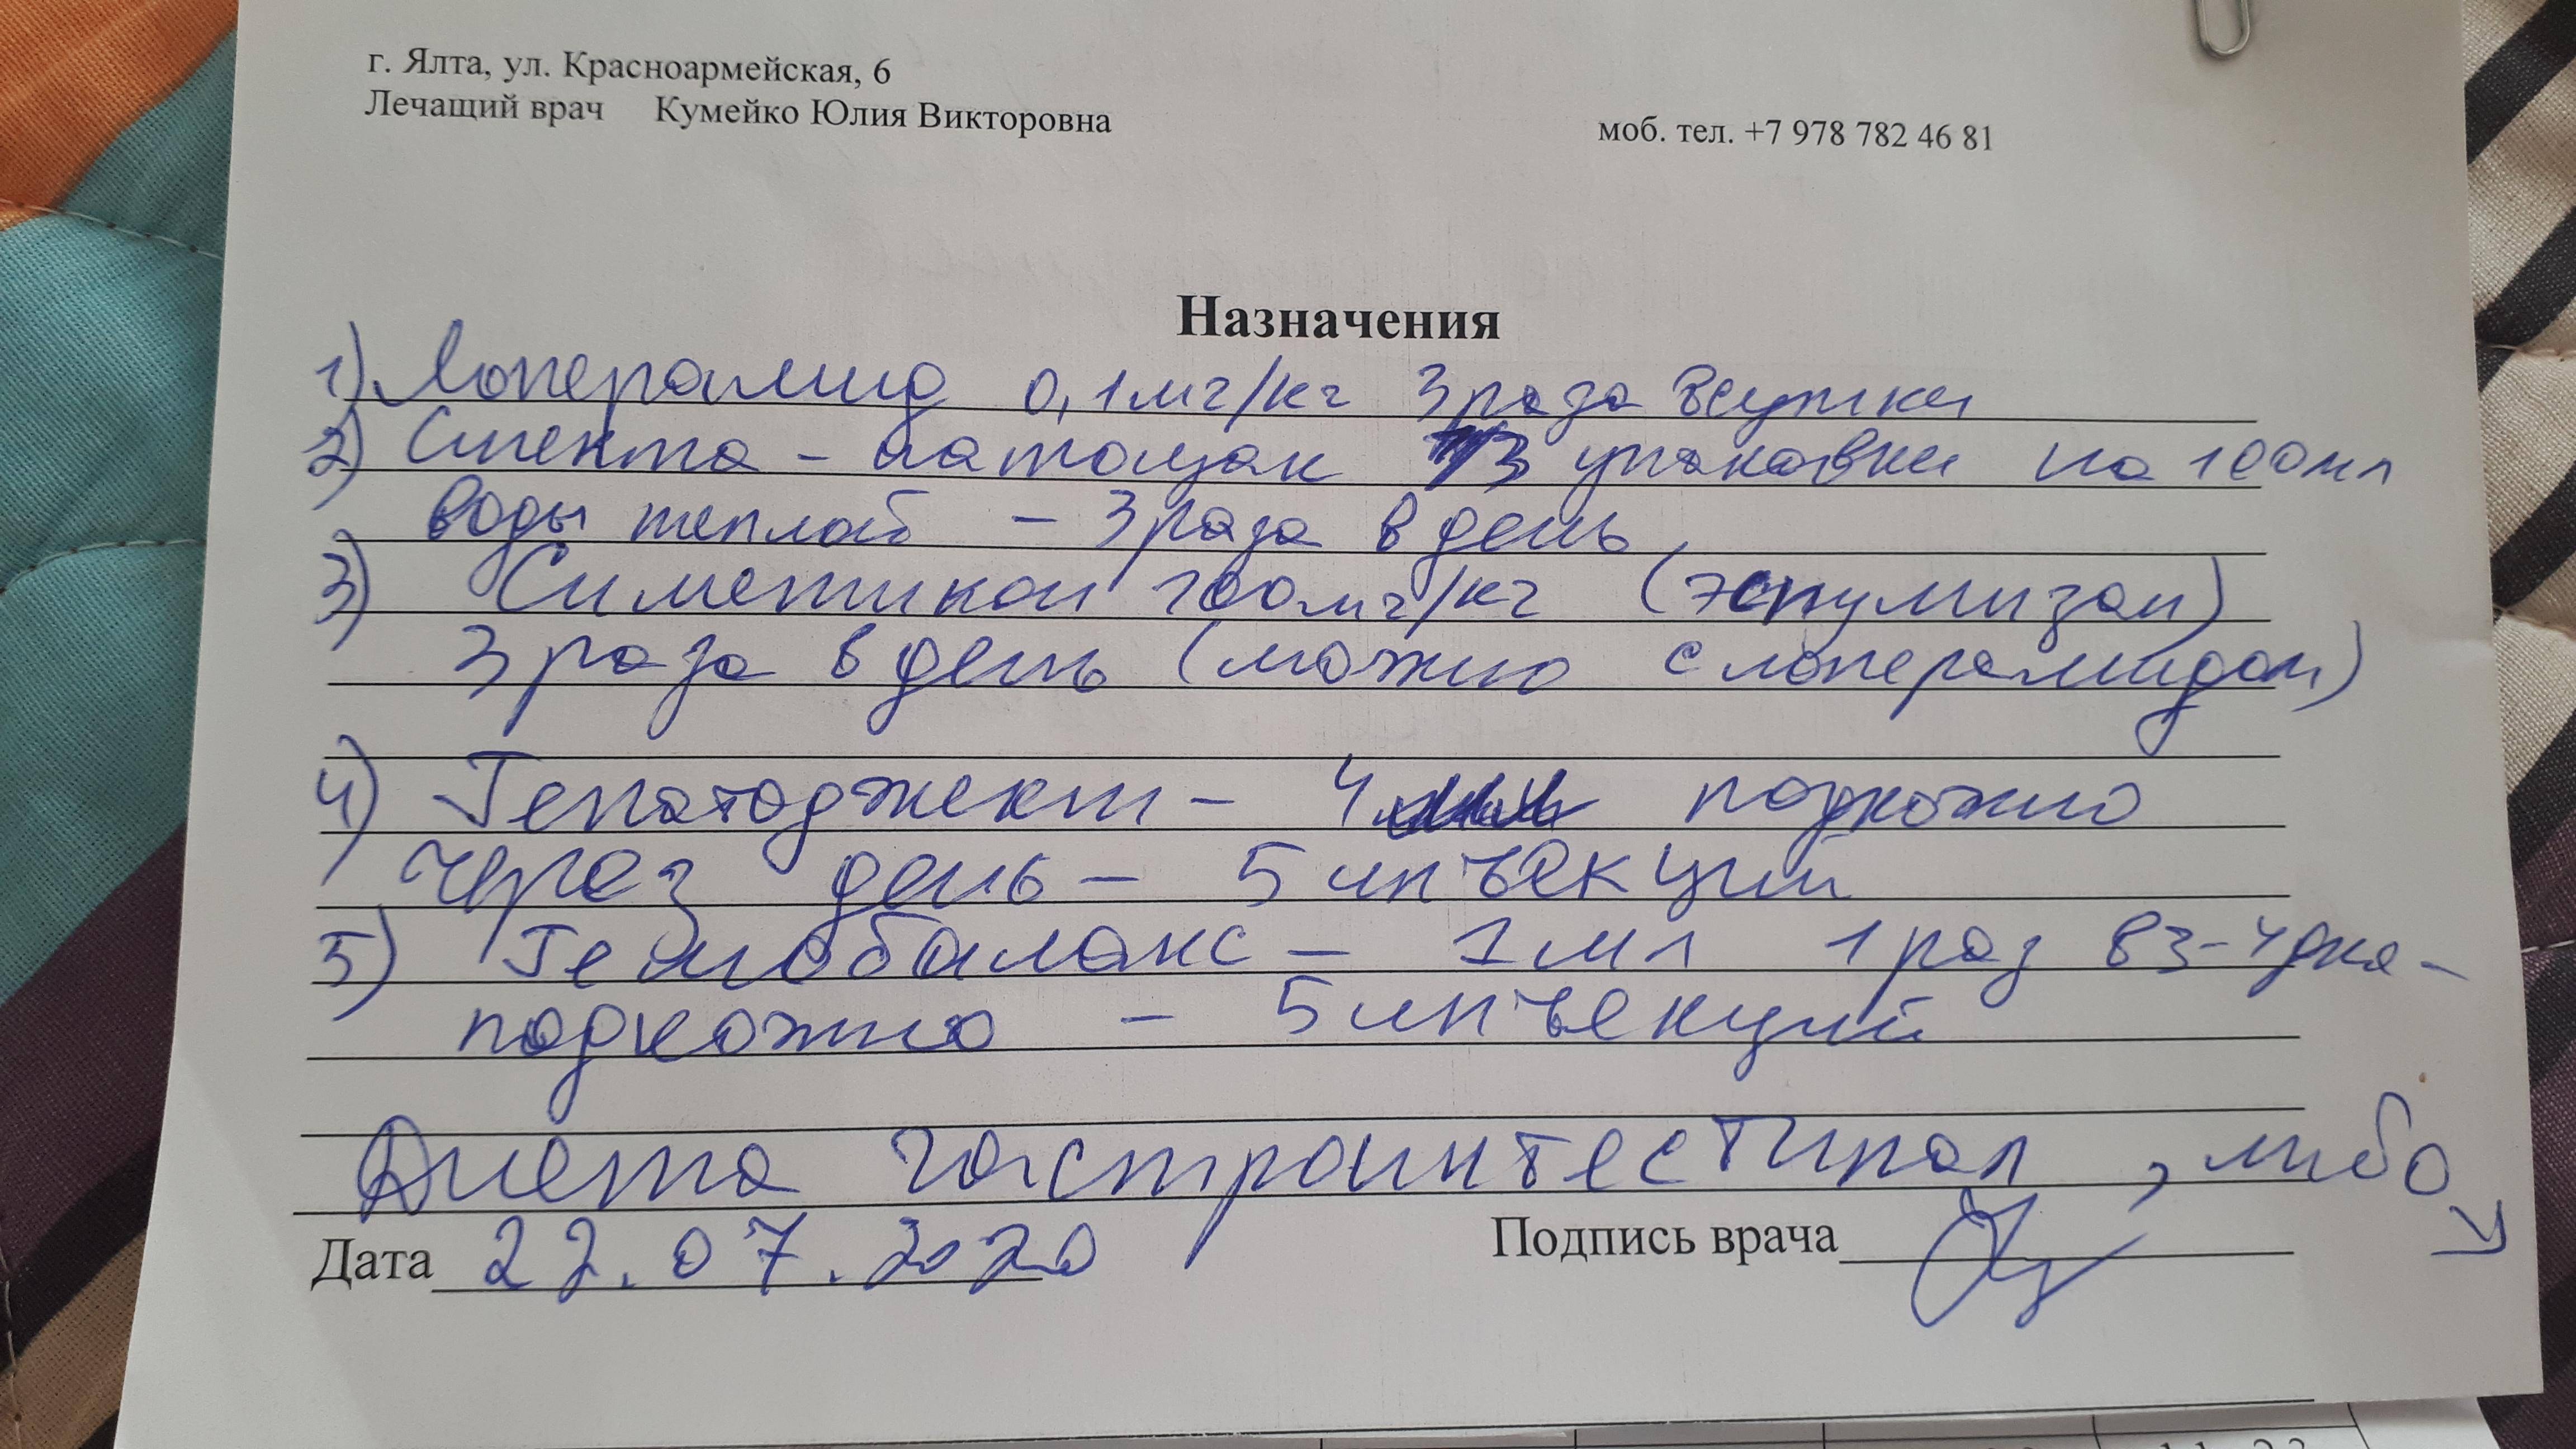 г. Ялта, ул. Красноармейская, 6
Лечащий врач Кумейко Юлия Викторовна
моб. тел. +7 978 782 46 81
Назначения
1) Лоперамид 0,1мг/кг 3 раза в сутки
2) Смекта - натощак 1/3 упаковки на 100мл
воды теплой - 3 раза в день
3) Симетикон 100мг/кг (эспумизан)
3 раза в день (можно с лоперамидом)
4) Гепатоджект - 4 мл подкожно
через день - 5 инъекций
5) Гемобаланс - 1 мл 1 раз в 3-4 дня -
подкожно - 5 инъекций
Диета гастроинтестинал, либо
Дата 22.07.2020 Подпись врача